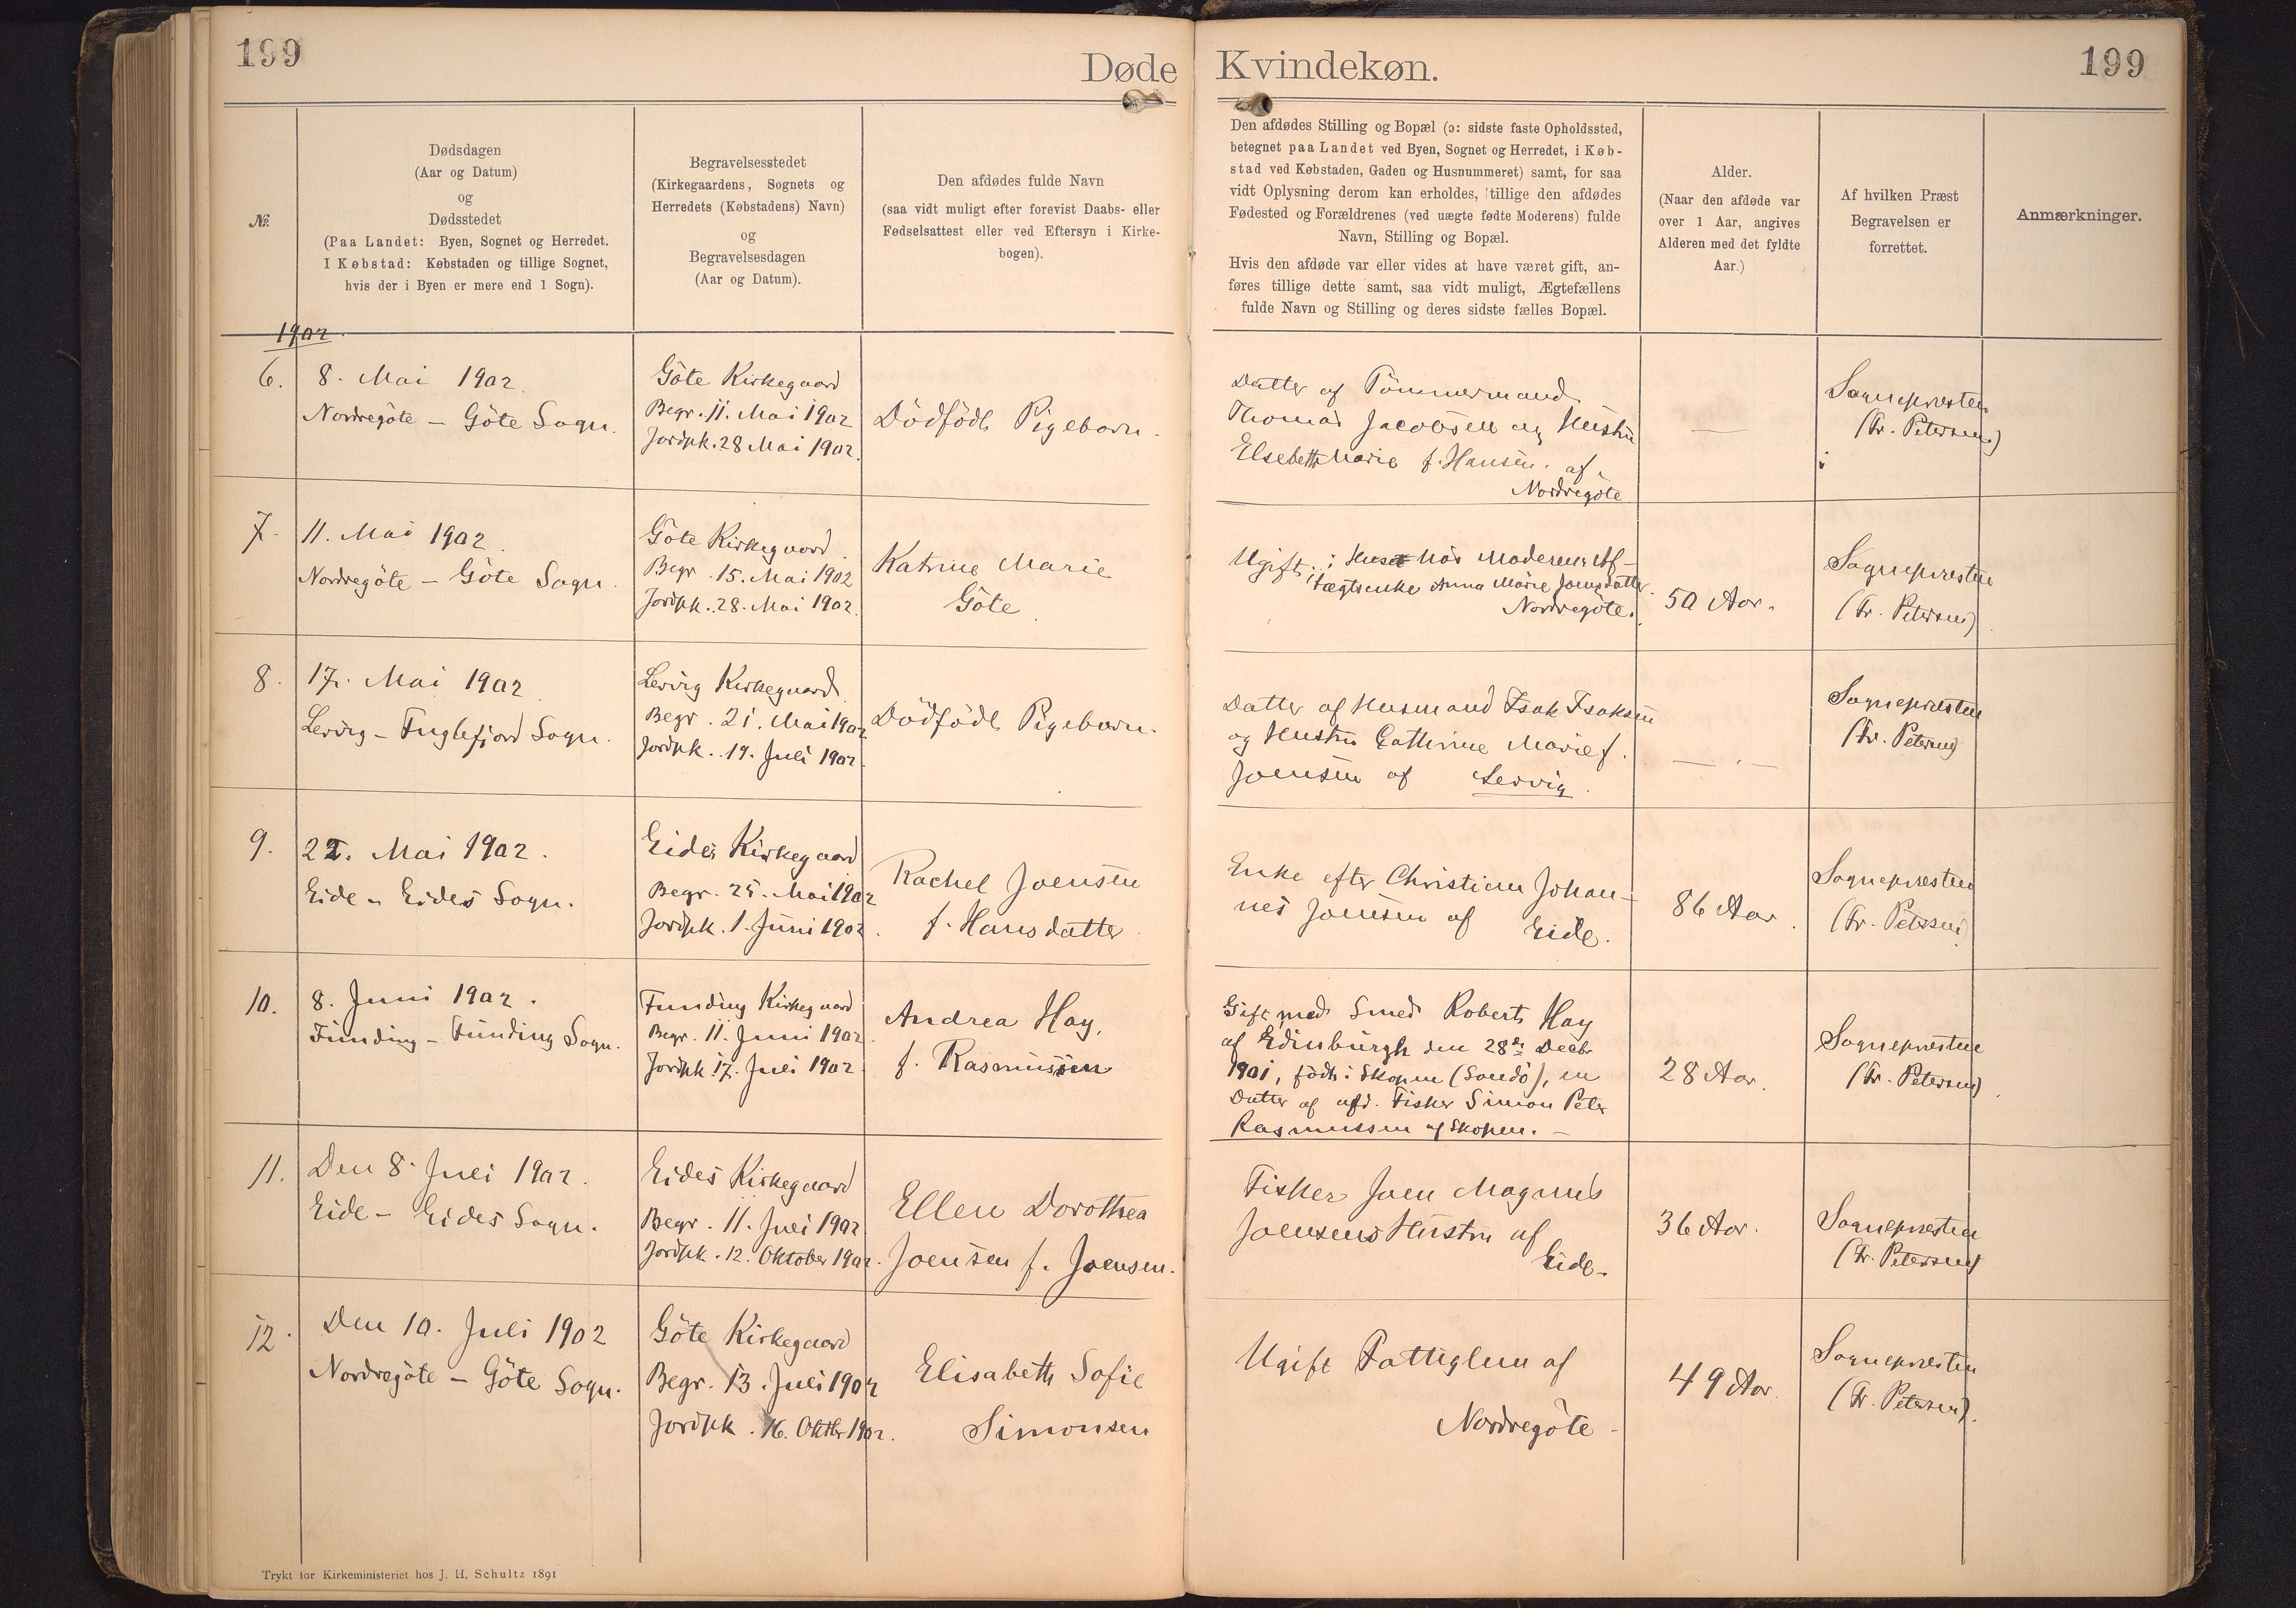 199
Døde Kvindekøn.
199
№.
Dødsdagen
(Aar og Datum)
og
Dødsstedet
(Paa Landet: Byen, Sognet og Herredet.
I Købstad: Købstaden og tillige Sognet,
hvis der i Byen er mere end 1 Sogn).
Begravelsesstedet
(Kirkegaardens, Sognets og
Herredets (Købstadens) Navn)
og
Begravelsesdagen
(Aar og Datum).
Den afdødes fulde Navn
(saa vidt muligt efter forevist Daabs- eller
Fødselsattest eller ved Eftersyn i Kirke-
bogen).
Den afdødes Stilling og Bopæl (ɔ: sidste faste Opholdssted,
betegnet paa Landet ved Byen, Sognet og Herredet, i Køb-
stad ved Købstaden, Gaden og Husnummeret) samt, for saa
vidt Oplysning derom kan erholdes, tillige den afdødes
Fødested og Forældrenes (ved uægte fødte Moderens) fulde
Navn, Stilling og Bopæl.
Hvis den afdøde var eller vides at have været gift, an-
føres tillige dette samt, saa vidt muligt, Ægtefællens
fulde Navn og Stilling og deres sidste fælles Bopæl.
Alder.
(Naar den afdøde var
over 1 Aar, angives
Alderen med det fyldte
Aar.)
Af hvilken Præst
Begravelsen er
forrettet.
Anmærkninger.
1902.
6.
8. Mai 1902.
Nordregöte – Göte Sogn.
Göte Kirkegaard
Begr. 11. Mai 1902
Jordpk. 28 Mai 1902.
Dödfödt Pigebarn.
Datter af Tömmermand
Thomas Jacobsen og Hustru
Elsebeth Marie f. Hansen. af
Nordregöte
—
Sognepræsten
(Fr. Petersen)
7.
11. Mai 1902.
Nordregöte – Göte Sogn.
Göte Kirkegaard.
Begr. 15. Mai 1902
Jordpk. 28. Mai 1902.
Katrine Marie
Göte.
Ugift, i Huset hos Moderen Af-
tægtsenke Anna Marie Joensdatter.
Nordregöte.
50 Aar.
Sognepræsten
(Fr. Petersen)
8.
17. Mai 1902.
Lervig – Fuglefjord Sogn.
Lervig Kirkegaard.
Begr. 21. Mai 1902
Jordpk. 19. Juli 1902.
Dödfödt Pigebarn.
Datter af Husmand Isak Isaksen
og Hustru Cathrine Marie f.
Joensen af Lervig.
— . —
Sognepræsten
(Fr. Petersen)
9.
22. Mai 1902.
Eide – Eides Sogn.
Eides Kirkegaard
Begr. 25. Mai 1902
Jordpk. 1. Juni 1902.
Rachel Joensen
f. Hansdatter.
Enke efter Christian Johan-
nes Joensen af Eide.
86 Aar.
Sognepræsten
(Fr. Petersen)
10.
8. Juni 1902.
Funding – Funding Sogn.
Funding Kirkegaard
Begr. 11. Juni 1902.
Jordpk. 17. Juli 1902
Andrea Hay,
f. Rasmussen
Gift med Smed Robert Hay
af Edinburgh den 28de Decbr
1901, födt i Skopen (Sandö), en
Datter af afd. Fisker Simon Peter
Rasmussen af Skopen. –
28 Aar.
Sognepræsten
(Fr. Petersen)
11.
Den 8. Juli 1902.
Eide – Eides Sogn.
Eides Kirkegaard
Begr. 11. Juli 1902
Jordpk. 12. Oktober 1902.
Ellen Dorothea
Joensen f. Joensen.
Fisker Joen Magnus
Joensens Hustru af
Eide.
36 Aar.
Sognepræsten
(Fr. Petersen)
12.
Den 10. Juli 1902
Nordregöte – Göte Sogn.
Göte Kirkegaard
Begr. 13. Juli 1902
Jordpk. 16. Oktbr 1902.
Elisabeth Sofie
Simonsen
Ugift Fattiglem af
Nordregöte.
49 Aar.
Sognepræsten
(Fr. Petersen).
Trykt for Kirkeministeriet hos J. H. Schultz 1891